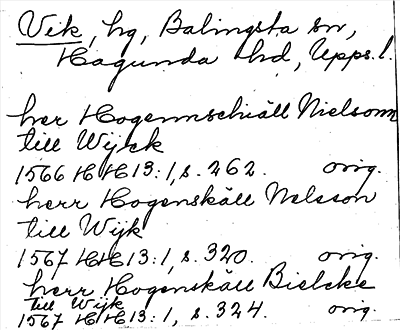 Vik, hg, Balingsta sn,
Hagunda hd, Upps.l.
her Hogennschiäll Nielsonn
till Wijck
1566 HH 13:1, s. 262. orig.
herr Hogenskäll Nelsson
till Wijk
1567 HH 13:1, s. 320. orig.
herr Hogenskäll Bielcke
till Wijk
1567 HH 13:1, s. 324. orig.